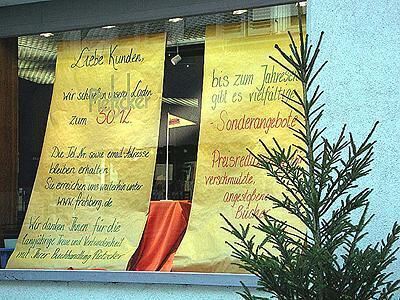 Liebe Kunden,
wir schließen unsern Laden
zum 30.12.
Die Tel.Nr. sowie email-Adresse
bleiben erhalten.
Sie erreichen uns weiterhin unter
www.frohberg.de
Wir danken Ihnen für die
langjährige Treue und Verbundenheit
mit Ihrer Buchhandlung Fletcker
Fletcker
bis zum Jahresen
gibt es vielfältige
Sonderangebote
Preisredu
verschmutzte,
angestoßene
Bücher